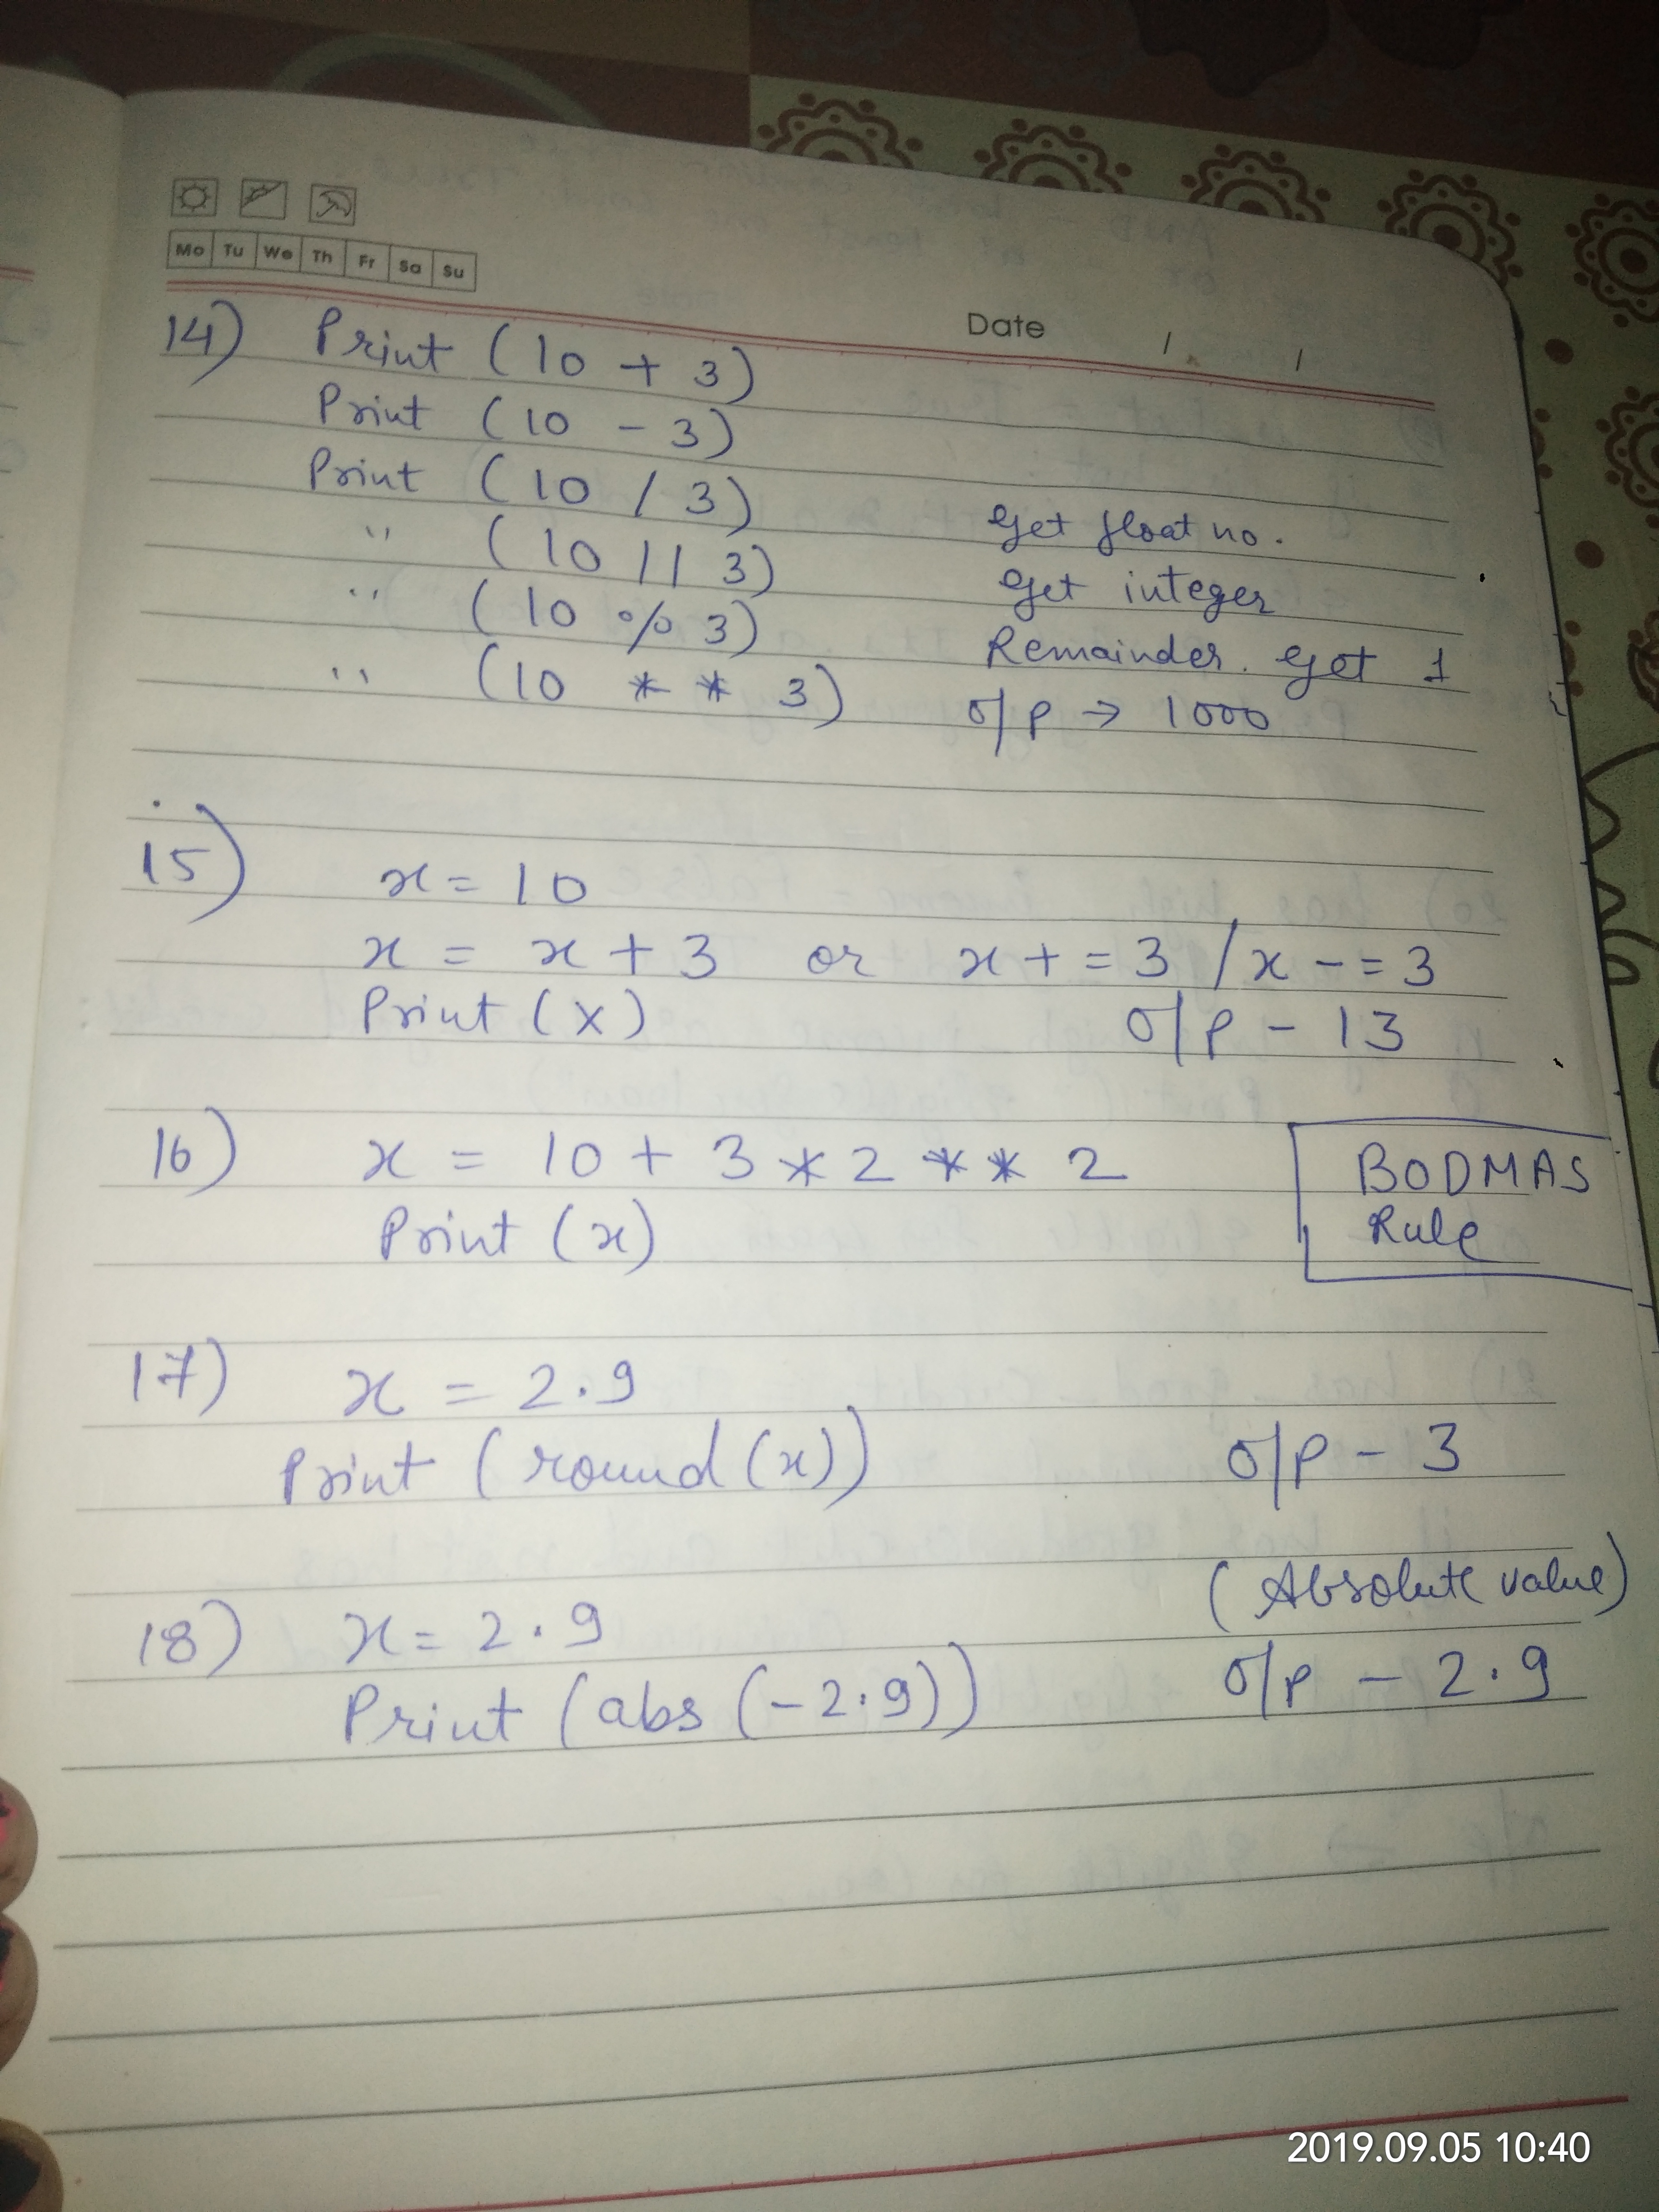 Mo Tu We Th Fr Sa Su
Date / /
14) Print (10 + 3)
Print (10 - 3)
Print (10 / 3) Get float no.
" (10 // 3) Get integer
" (10 % 3) Remainder. Get 1
" (10 * * 3) o/p → 1000
15) x = 10
x = x + 3 or x + = 3 / x - = 3
Print (x) o/p - 13
16) x = 10 + 3 * 2 * * 2 BODMAS
Print (x) Rule
17) x = 2.9
Print (round (x)) o/p - 3
(Absolute value)
18) x = 2.9
Print (abs (-2.9)) o/p - 2.9
2019.09.05 10:40